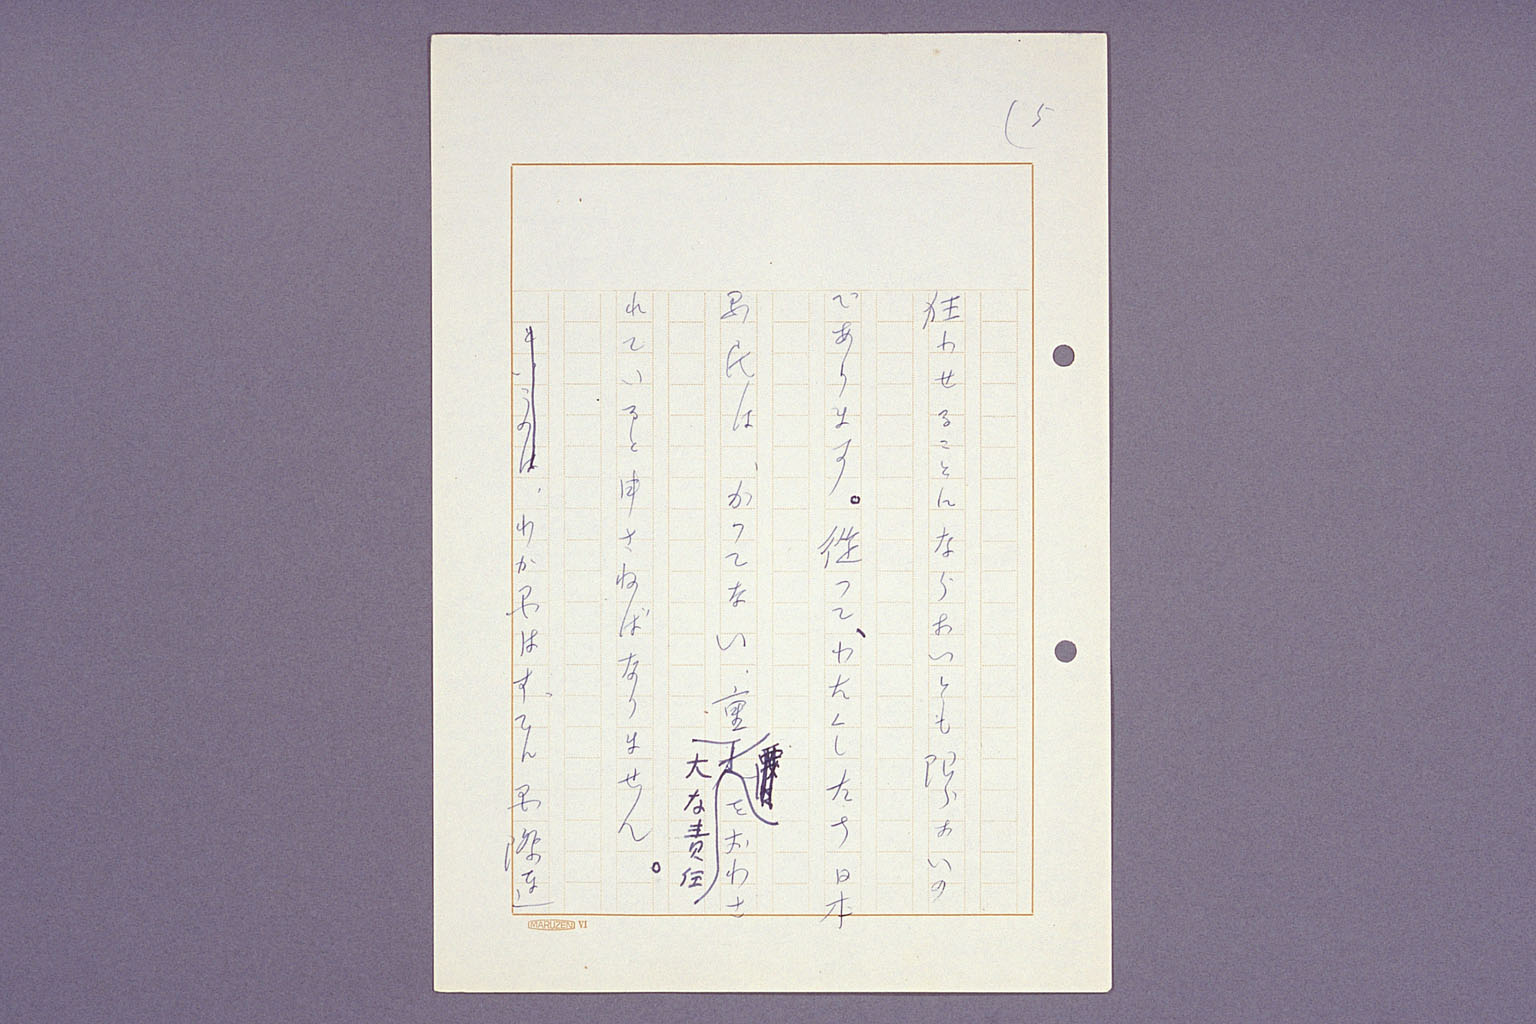 5
狂わせることにならないとも限らないの
であります。従って、わたくしたち日本
国民は、かつてない、重大な責任をおわさ
れていると申さねばなりません。
というのは、わが国はすでに国際連
MARUZEN VI